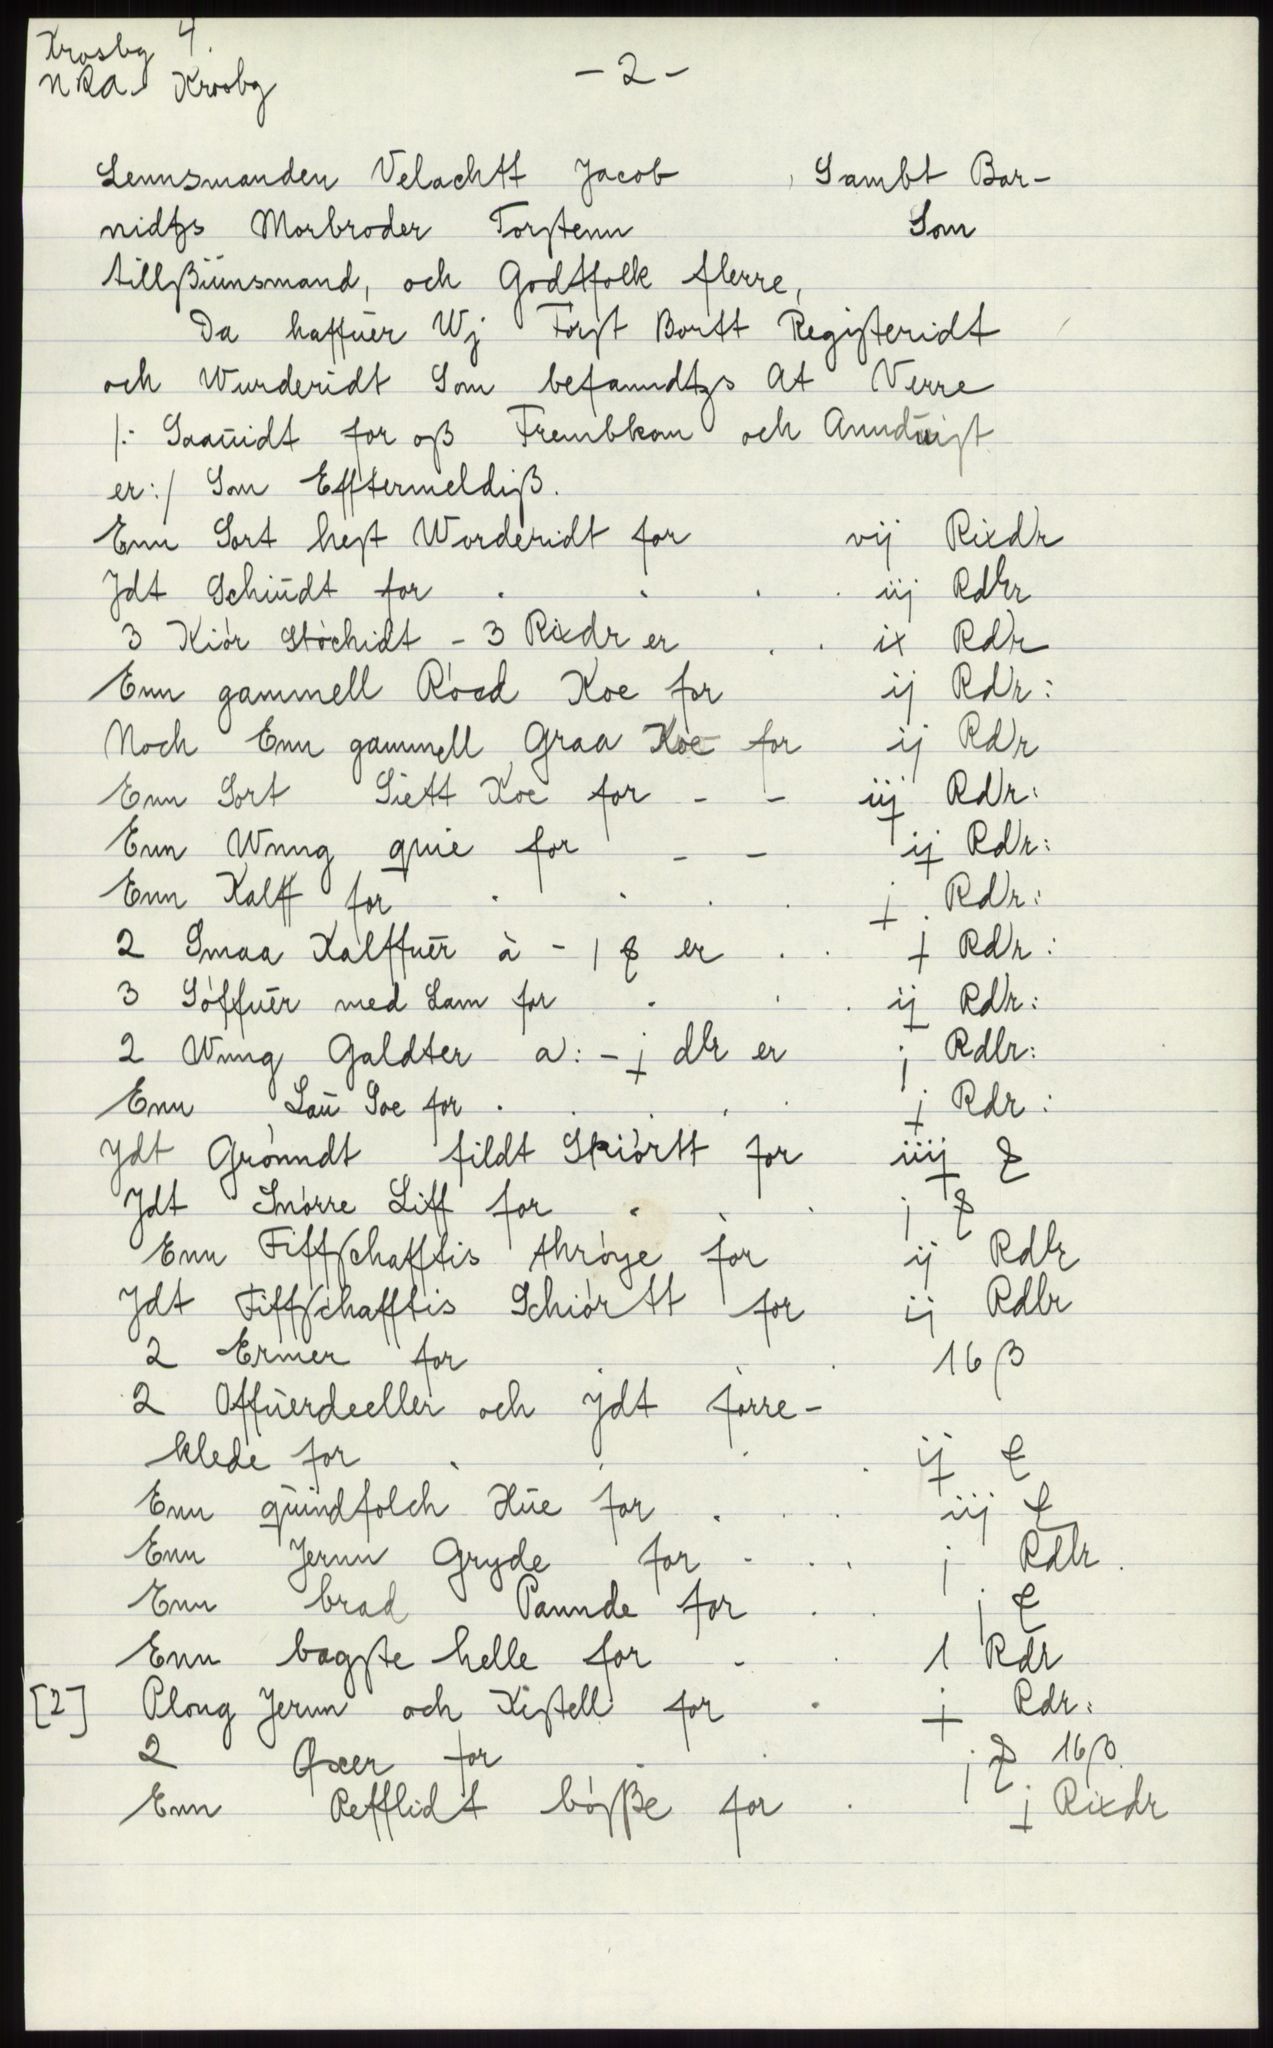 Krosby 4.
NRA. Krosby
- 2 -
Lennsmanden Velachtt Jacob , Sambt Bar-
nidtzs Morbroder Torstenn Som
tillßiünsmand, och Godtfolk flerre,
Da haffuer Wj Først Bortt Registeridt
och Wurderidt Som befanndtzs At Verre
/:- Saauidt for oß Frembkom och
er:/ Som Efftermeldiß.
Enn Sort hest Wurderidt for vij Rixdr
Jdt Schiüdt for . . . . iij Rdlr
3 Kiör Støchidt - 3 Rixdr er . . ix Rdr
Enn gammell Röed Koe for ij Rdr:
Noch Enn gammell Graa Koe for ij Rdr
Enn Sort Siett Koe for - - iij Rdr:
Enn Wnng quie for - - ij Rdr:
Enn Kalff for . . . . j Rdr:
2 Smaa Kalffuer à - 1 ₰ er . . j Rdr:
3 Söffuer med Lam for . . . ij Rdr:
2 Wnng Galdter a: - j dlr er j Rdlr:
Enn Lau Soe for . . . . . j Rdr:
Jdt Grönndt fildt Skiörtt for iiij ₰
Jdt Snörre Liff for . . . j ₰
Enn Fiffschafftis thröye for ij Rdlr
Jdt Fiffschafftis Schiörtt for ij Rdlr
2 Ermer for . . . 16 ß
2 Offuerdeeller och Jdt förre-
klede for . . . . ij ₰
Enn quindfolch Hüe for . . . iij ₰
Enn Jernn Gryde for . . . j Rdlr.
Enn brad Pannde for . . j ₰
Enn bagste helle for . . 1 Rdr
[2] Ploug Jernn och Kistell for . j Rdr:
2 Øxer for . . j ₰ 16 ß.
Enn Refflidt bößße for . j Rixdr